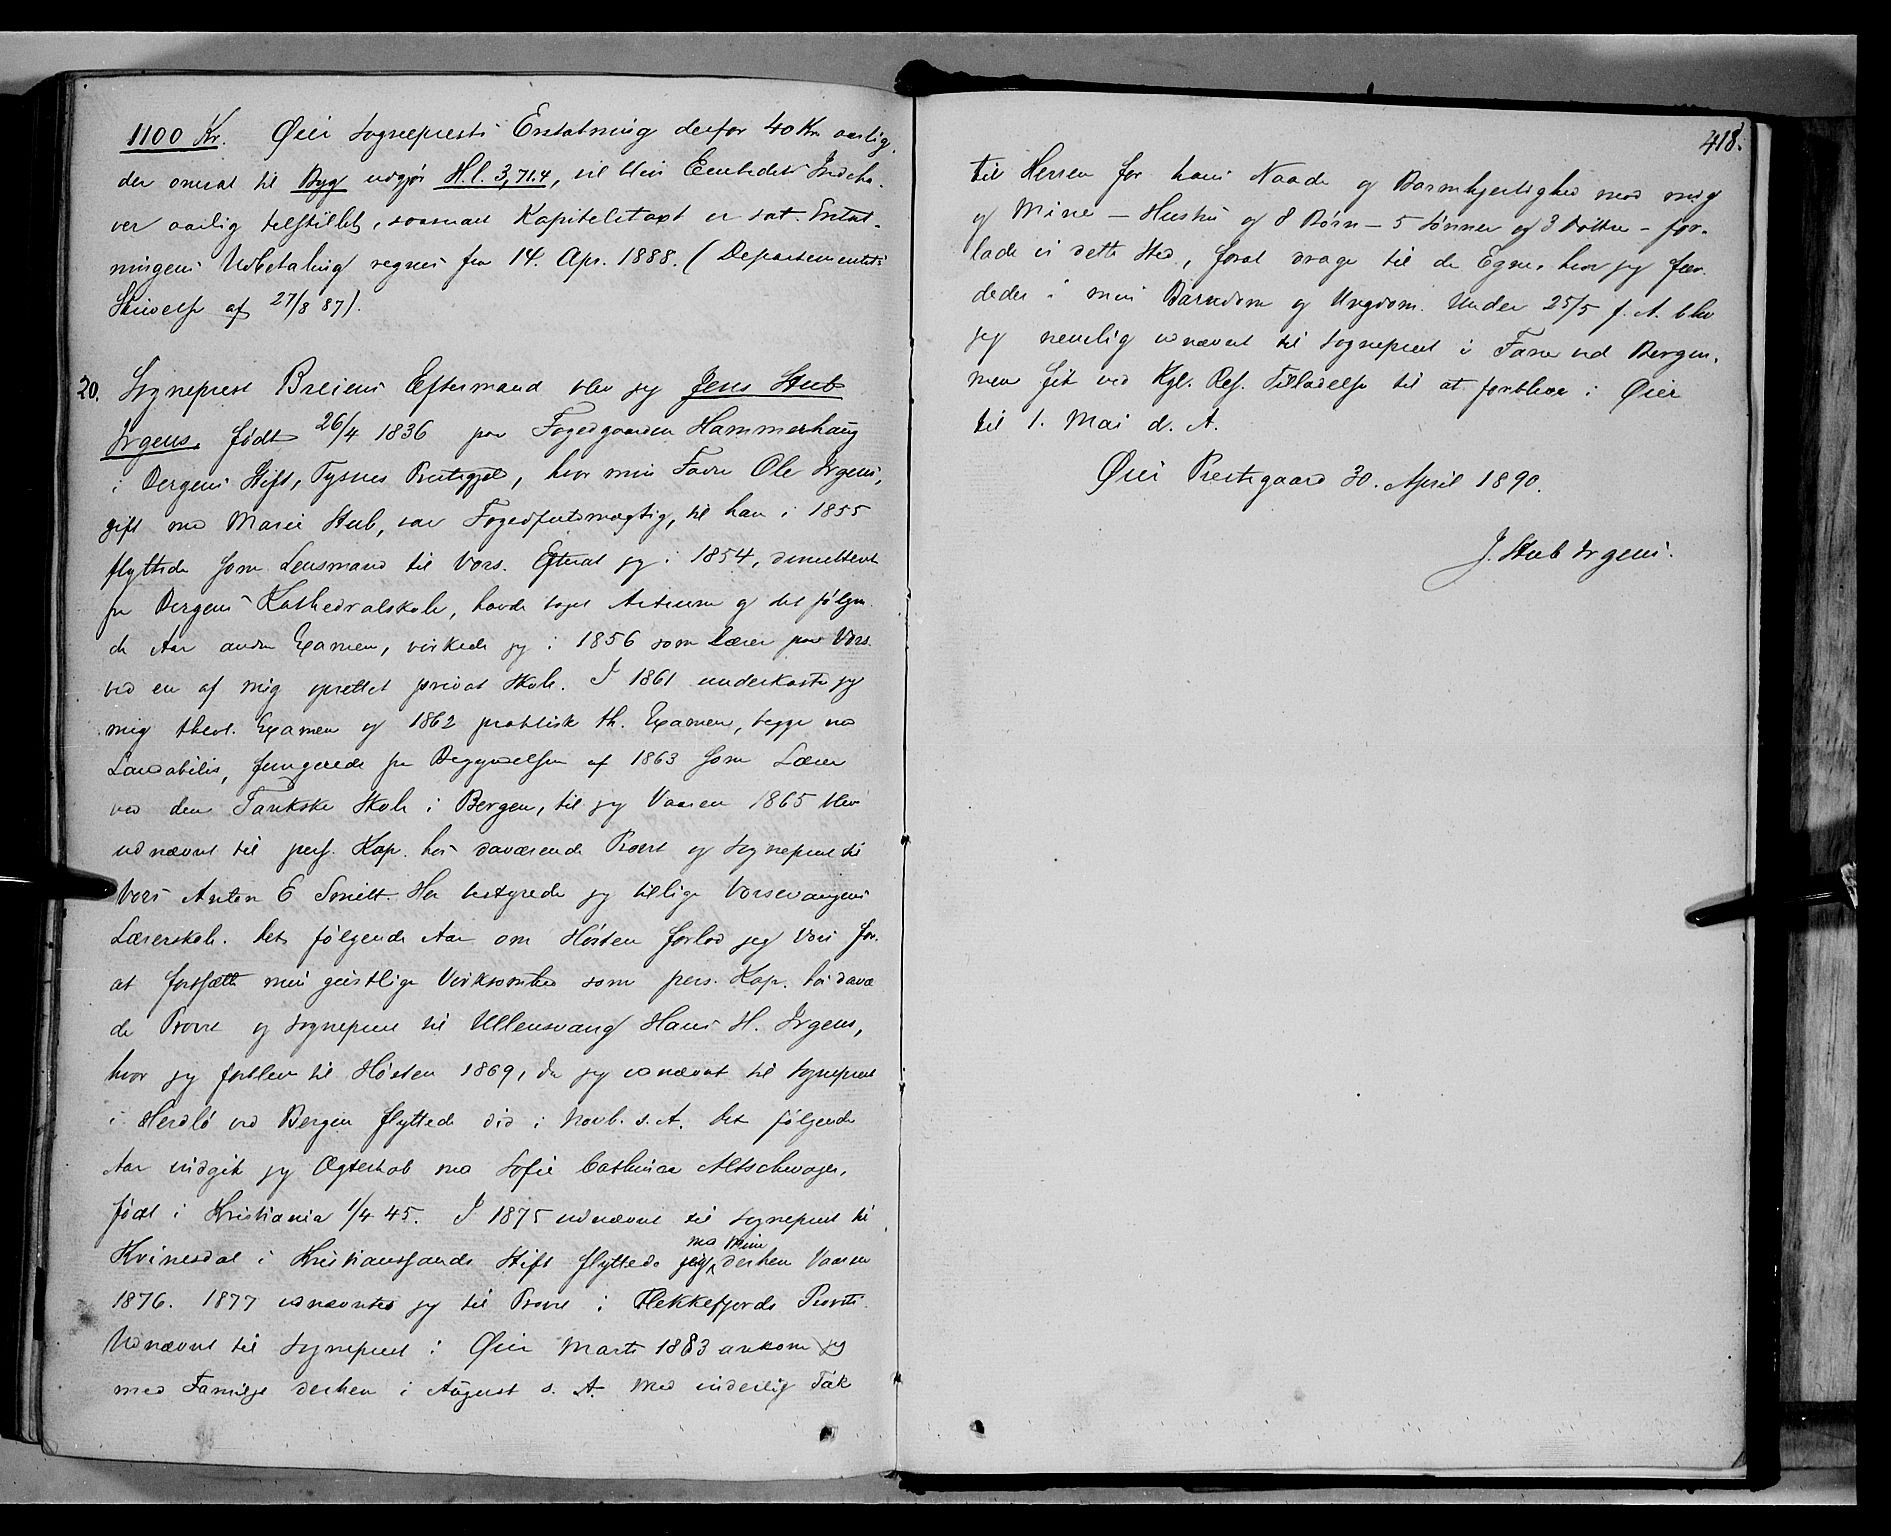 1100 Kr. Øier Sogneprests Erstatning derfor 40 Kr. aarlig,
der omsat til Byg udgjør H.l. 3,71.4, vil blive Embedets Indeha-
ver aarlig tilstillet, saasnart Kapitelstaxt er sat. Erstat-
ningens Udbetaling regnes fra 14. Apr. 1888. (Departementets
Skrivelse af 27/8 87).
20. Sogneprest Breiens Eftermand blev jeg Jens Stub
Irgens, født 26/4 1836 paa Fogedgaarden Hammerhaug
i Bergens Stift, Tysnes Prestegjeld, hvor min Fader Ole Irgens,
gift med Marie Stub, var Fogedfuldmægtig, til han i 1855
flyttede som Lensmand til Vors. Efterat jeg i 1854, dimitteret
fra Bergens Kathedralskole, havde taget Artium og det følgen-
de Aar anden Examen, virkede jeg i 1856 som Lærer paa Vors
ved en af mig oprettet privat Skole. I 1861 underkastede jeg
mig theol. Examen og 1862 praktisk th. Examen, begge med
Laudabilis, fungerede fra Begyndelsen af 1863 som Lærer
ved den Tankske Skole i Bergen, til jeg Vaaren 1865 blev
udnævnt til pers. Kap. hos daværende Provst og Sogneprest til
Vors Anton E Smitt. Her bestyrede jeg tillige Vossevangens
Lærerskole. Det følgende Aar om Høsten forlod jeg Vors for
at fortsætte min geistlige Virksomhed som pers. Kap. hos davæ
de Provst og Sogneprest til Ullensvang Hans H. Irgens,
hvor jeg forblev til Høsten 1869, da jeg udnævnt til Sogneprest
i Herdlø ved Bergen flyttede did i Novb. s. A. Det følgende
Aar indgik jeg Ægteskab med Sofie Cathrine Altschwager,
født i Kristiania 1/4 45. I 1875 udnævnt til Sogneprest til
Kvinesdal i Kristianssands Stift flyttede jeg med Mine derhen Vaaren
1876. 1877 udnævntes jeg til Provst i Flekkefjords Provsti.
Udnævnt til Sogneprest i Øier Marts 1883 ankom jeg
med Familje derhen i August s. A. Med inderlig Tak
418.
til Herren for hans Naade og Barmhjertighed mod mig
og Mine - Hustru og 8 Børn - 5 Sønner og 3 Døttre - for-
lade vi dette Sted, forat drage til de Egne, hvor jeg fær-
dedes i min Barndom og Ungdom. Under 25/5 f. A. blev
jeg nemlig udnævnt til Sogneprest i Fane ved Bergen,
men fik ved Kgl. Res. Tilladelse til at forblive i Øier
til 1. Mai d. A.
Øier Prestegaard 30. April 1890.
J. Stub Irgens.